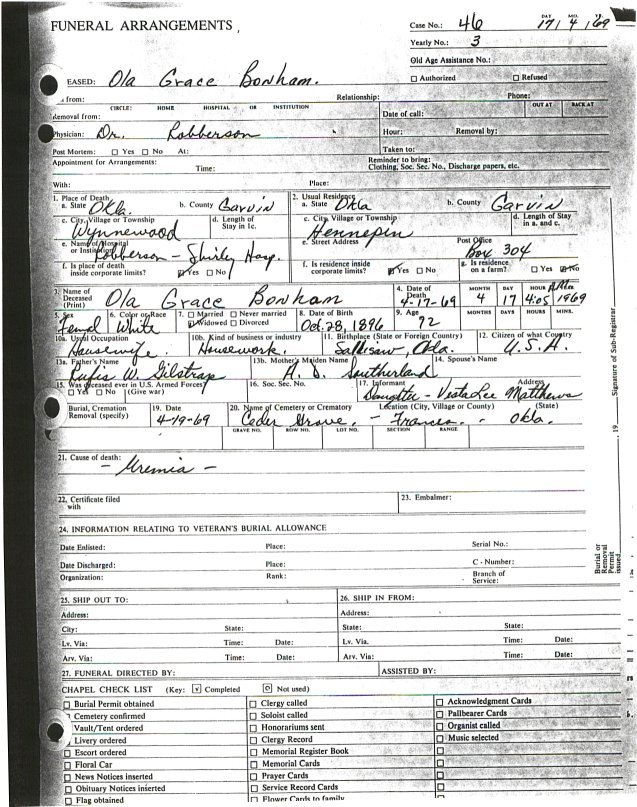 FUNERAL ARRANGEMENTS
Case No.: 46
DAY MO. YR.
17 / 4 / 69
Yearly No.: 3
Old Age Assistance No.:
☐ Authorized ☐ Refused
EASED: Ola Grace Bonham.
from: Relationship: Phone:
CIRCLE: HOME HOSPITAL OR INSTITUTION OUT AT BACK AT
Removal from: Date of call:
Physician: Dr. Robberson Hour: Removal by:
Post Mortem: ☐ Yes ☐ No At: Taken to:
Appointment for Arrangements: Reminder to bring:
Time: Clothing, Soc. Sec. No., Discharge papers, etc.
With: Place:
1. Place of Death 2. Usual Residence
a. State Okla. b. County Garvin a. State Okla b. County Garvin
c. City, Village or Township d. Length of Stay in 1c. c. City, Village or Township d. Length of Stay in a. and c.
Wynnewood Hennepin
e. Name of Hospital or Institution Robberson - Shirley Hosp. e. Street Address Post Office Box 304
f. Is place of death inside corporate limits? ☑ Yes ☐ No f. Is residence inside corporate limits? ☑ Yes ☐ No g. Is residence on a farm? ☐ Yes ☑ No
3. Name of Deceased (Print) Ola Grace Bonham 4. Date of Death 4-17-69 MONTH 4 DAY 17 HOUR 4:05 1969
5. Sex 6. Color or Race 7. ☐ Married ☐ Never married 8. Date of Birth 9. Age MONTHS DAYS HOURS MINS.
Femal White ☑ Widowed ☐ Divorced Oct. 28, 1896 72
10a. Usual Occupation 10b. Kind of business or industry 11. Birthplace (State or Foreign Country) 12. Citizen of what Country
Housewife. Housework. Sallisaw, Okla. U.S.A.
13a. Father's Name 13b. Mother's Maiden Name 14. Spouse's Name
Rufis W. Gilstrap Southerland
15. Was deceased ever in U.S. Armed Forces? 16. Soc. Sec. No. 17. Informant Address
☐ Yes ☐ No (Give war) Daughter - Vesta Lee Matthews
Burial, Cremation Removal (specify) 19. Date 20. Name of Cemetery or Crematory Location (City, Village or County) (State)
4-19-69 Ceder Grove. - Frances. - Okla.
GRAVE NO. ROW NO. LOT NO. SECTION RANGE
21. Cause of death:
- Uremia -
22. Certificate filed with 23. Embalmer:
24. INFORMATION RELATING TO VETERAN'S BURIAL ALLOWANCE
Date Enlisted: Place: Serial No.:
Date Discharged: Place: C - Number:
Organization: Rank: Branch of Service:
25. SHIP OUT TO: 26. SHIP IN FROM:
Address: Address:
City: State: State: State:
Lv. Via: Time: Date: Lv. Via. Time: Date:
Arv. Via: Time: Date: Arv. Via: Time: Date:
27. FUNERAL DIRECTED BY: ASSISTED BY:
CHAPEL CHECK LIST (Key: ☑ Completed Not used)
☐ Burial Permit obtained ☐ Clergy called ☐ Acknowledgment Cards
Cemetery confirmed ☐ Soloist called ☐ Pallbearer Cards
Vault/Tent ordered ☐ Honorariums sent ☐ Organist called
Livery ordered ☐ Clergy Record ☐ Music selected
☐ Escort ordered ☐ Memorial Register Book ☐
☐ Floral Car ☐ Memorial Cards ☐
☐ News Notices inserted ☐ Prayer Cards ☐
☐ Obituary Notices inserted ☐ Service Record Cards ☐
☐ Flag obtained ☐ Flower Cards to family ☐
Burial or Removal Permit issued 19 Signature of Sub-Registrar